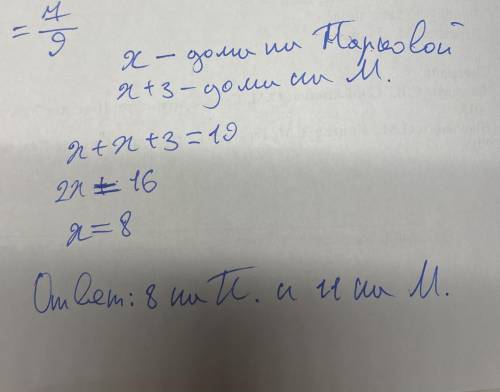 = 7/9
x - дома на Парковой
x+3 - дома на М.
x+x+3=19
2x = 16
x=8
Ответ: 8 на П. и 11 на М.